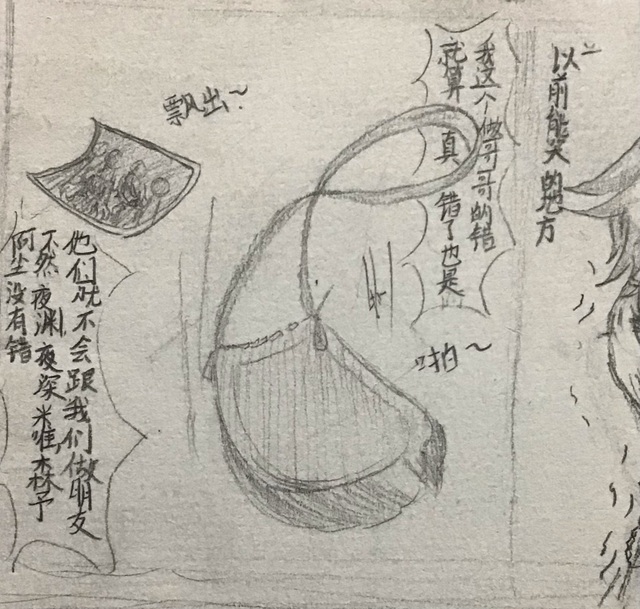 飘出~
阿尘没有错
不然夜渊,夜深米唯森予
他们就不会跟我们做朋友
就算真错了也是
我这个做哥哥的错
啪~
以前能笑的地方